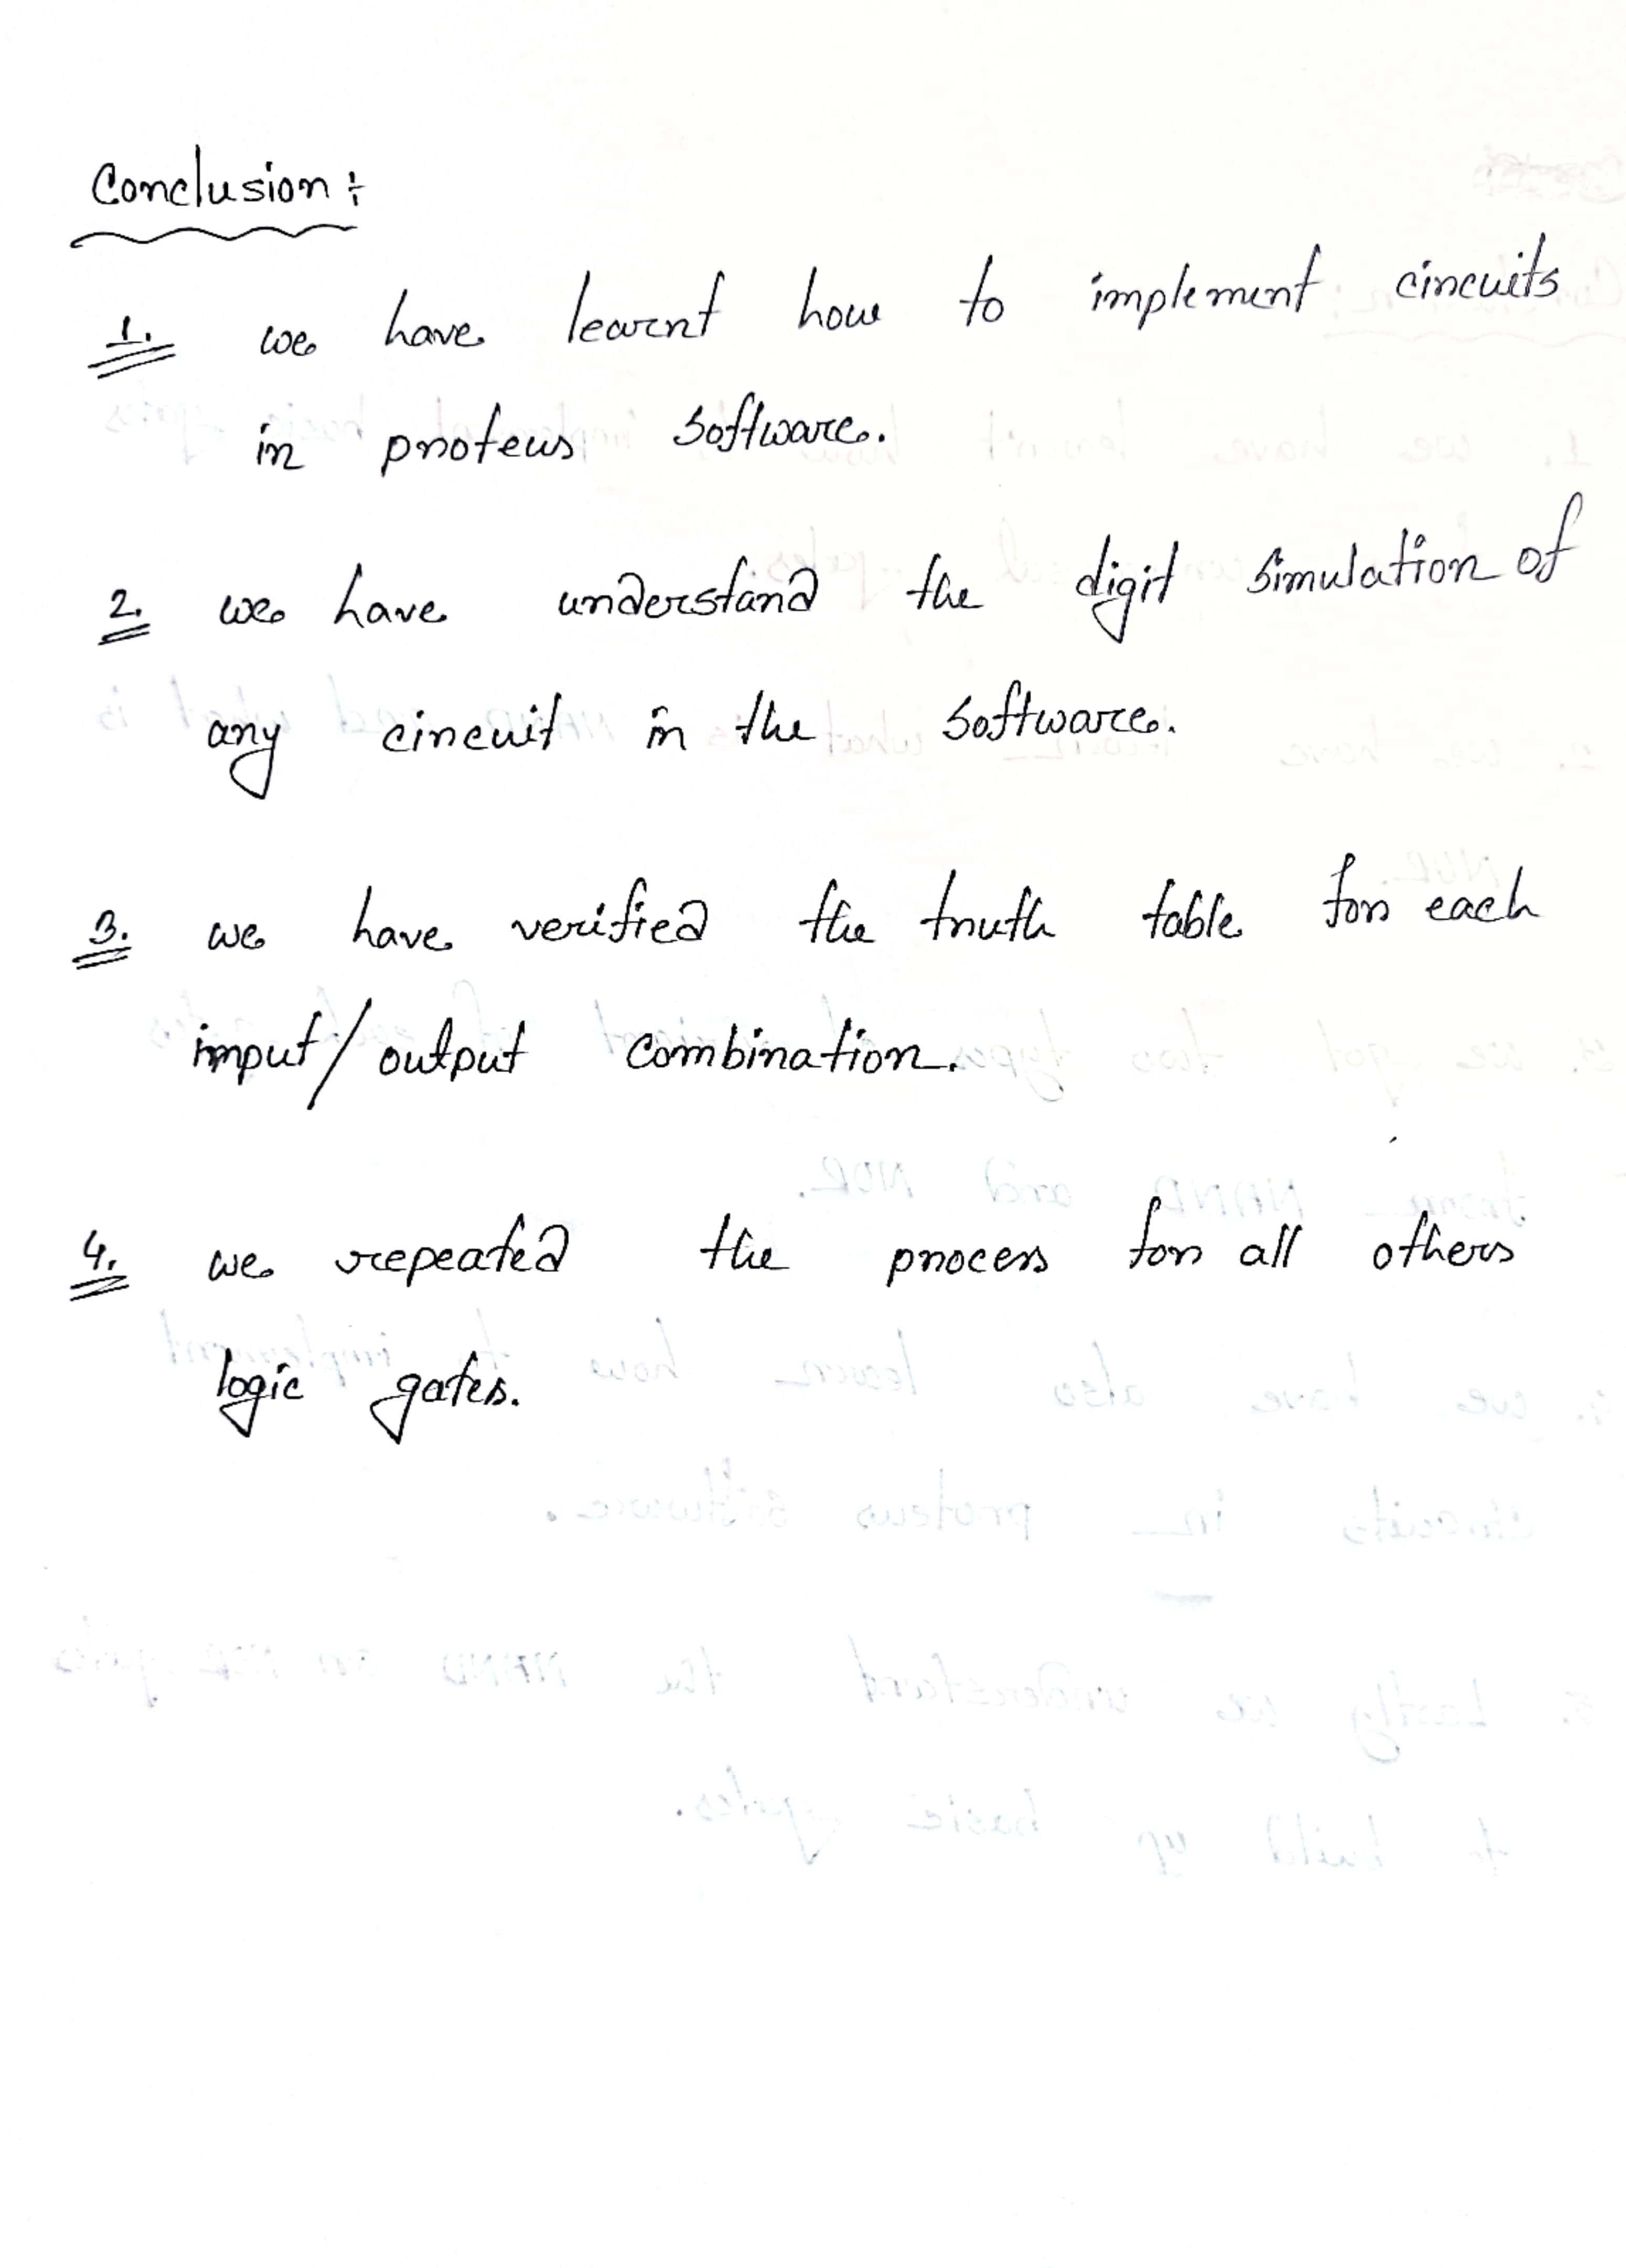 Conclusion:
1. we have learnt how to implement circuits
in proteus software.
2. we have understand the digit simulation of
any circuit in the software.
3. we have verified the truth table for each
input/output combination.
4. we repeated the process for all others
logic gates.